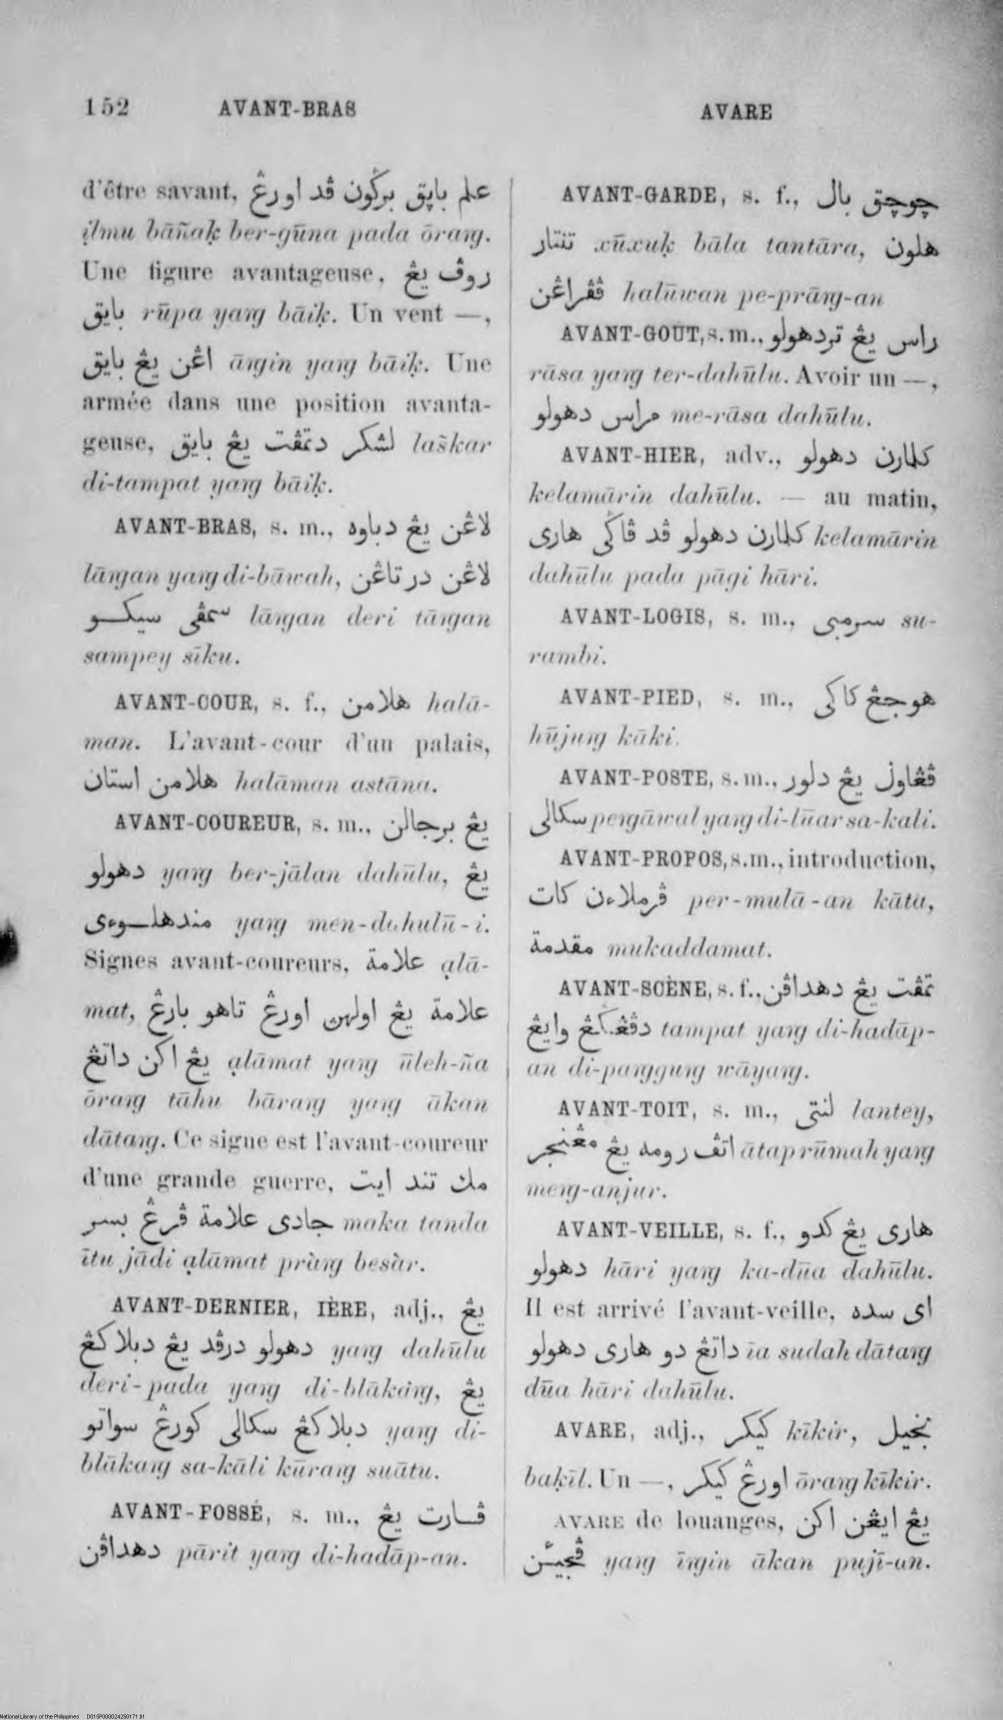 152 AVANT-BRAS
AVARE
d'être savant, علم باپق برݢون ڤد اورڠ
ịlmu bāñaḳ ber-gūna pada ōraŋg.
Une figure avantageuse, روڤ يڠ
بايق rūpa yaŋg bāiḳ. Un vent —,
اڠن يڠ بايق āŋgin yaŋg bāiḳ. Une
armée dans une position avanta-
geuse, لشكر دتمڤت يڠ بايق laškar
di-tampat yaŋg bāiḳ.
AVANT-BRAS, s. m., لاڠن يڠ دباوه
lāŋgan yaŋg di-bāwah, لاڠن در تاڠن
سمڤى سيكو lāŋgan deri tāŋgan
sampey sīku.
AVANT-COUR, s. f., هلامن halā-
man. L'avant-cour d'un palais,
هلامن استان halāman astāna.
AVANT-COUREUR, s. m., يڠ برجالن
دهولو yaŋg ber-jālan dahūlu, يڠ
مندهلوءى yaŋg men-dahulū-i.
Signes avant-coureurs, علامة ạlā-
mat, علامة يڠ اولهن اورڠ تاهو بارڠ
يڠ اكن داتڠ ạlāmat yaŋg ūleh-ña
ōraŋg tāhu bāraŋg yaŋg ākan
dātaŋg. Ce signe est l'avant-coureur
d'une grande guerre, مك تند ايت
جادى علامة ڤرڠ بسر maka tanda
ītu jādi ạlāmat pràŋg besàr.
AVANT-DERNIER, IÈRE, adj., يڠ
دهولو درڤد يڠ دبلاكڠ yaŋg dahūlu
deri-pada yaŋg di-blākaŋg, يڠ
دبلاكڠ سكالى كورڠ سواتو yaŋg di-
blākaŋg sa-kāli kūraŋg suātu.
AVANT-FOSSÉ, s. m., ڤارت يڠ
دهداڤن pārit yaŋg di-hadāp-an.
AVANT-GARDE, s. f., چوچق بال
هلون تنتار xūxuḳ bāla tantāra,
ڤڤراڠن halūwan pe-prāŋg-an
AVANT-GOÛT, s. m., راس يڠ تردهولو
rāsa yaŋg ter-dahūlu. Avoir un —,
مراس دهولو me-rāsa dahūlu.
AVANT-HIER, adv., كلمارن دهولو
kelamārin dahūlu. — au matin,
كلمارن دهولو ڤد ڤاݢى هارى kelamārin
dahūlu pada pāgi hāri.
AVANT-LOGIS, s. m., سرمبى su-
rambi.
AVANT-PIED, s. m., هوجڠ كاكى
hūjuŋg kāki.
AVANT-POSTE, s. m., ڤڠاول يڠ دلور
سكالى peŋgāwal yaŋg di-lūar sa-kali.
AVANT-PROPOS, s.m., introduction,
ڤرملاءن كات per-mulā-an kāta,
مقدمة mukaddamat.
AVANT-SCÈNE, s. f., تمڤت يڠ دهداڤن
دڤڠݢڠ وايڠ tampat yaŋg di-hadāp-
an di-paŋgguŋg wāyaŋg.
AVANT-TOIT, s. m., لنتى lantey,
اتڤ رومه يڠ مڠنجر ātap rūmah yaŋg
meŋg-anjur.
AVANT-VEILLE, s. f., هارى يڠ كدو
دهولو hāri yaŋg ka-dūa dahūlu.
Il est arrivé l'avant-veille, اى سده
داتڠ دو هارى دهولو īa sudah dātaŋg
dūa hāri dahūlu.
AVARE, adj., كيكر kīkir, بخيل
baḳīl. Un —, اورڠ كيكر ōraŋg kīkir.
AVARE de louanges, يڠ ايڠن اكن
ڤجيئن yaŋg īŋgin ākan pujī-an.
National Library of the Philippines D015P000024250171.tif